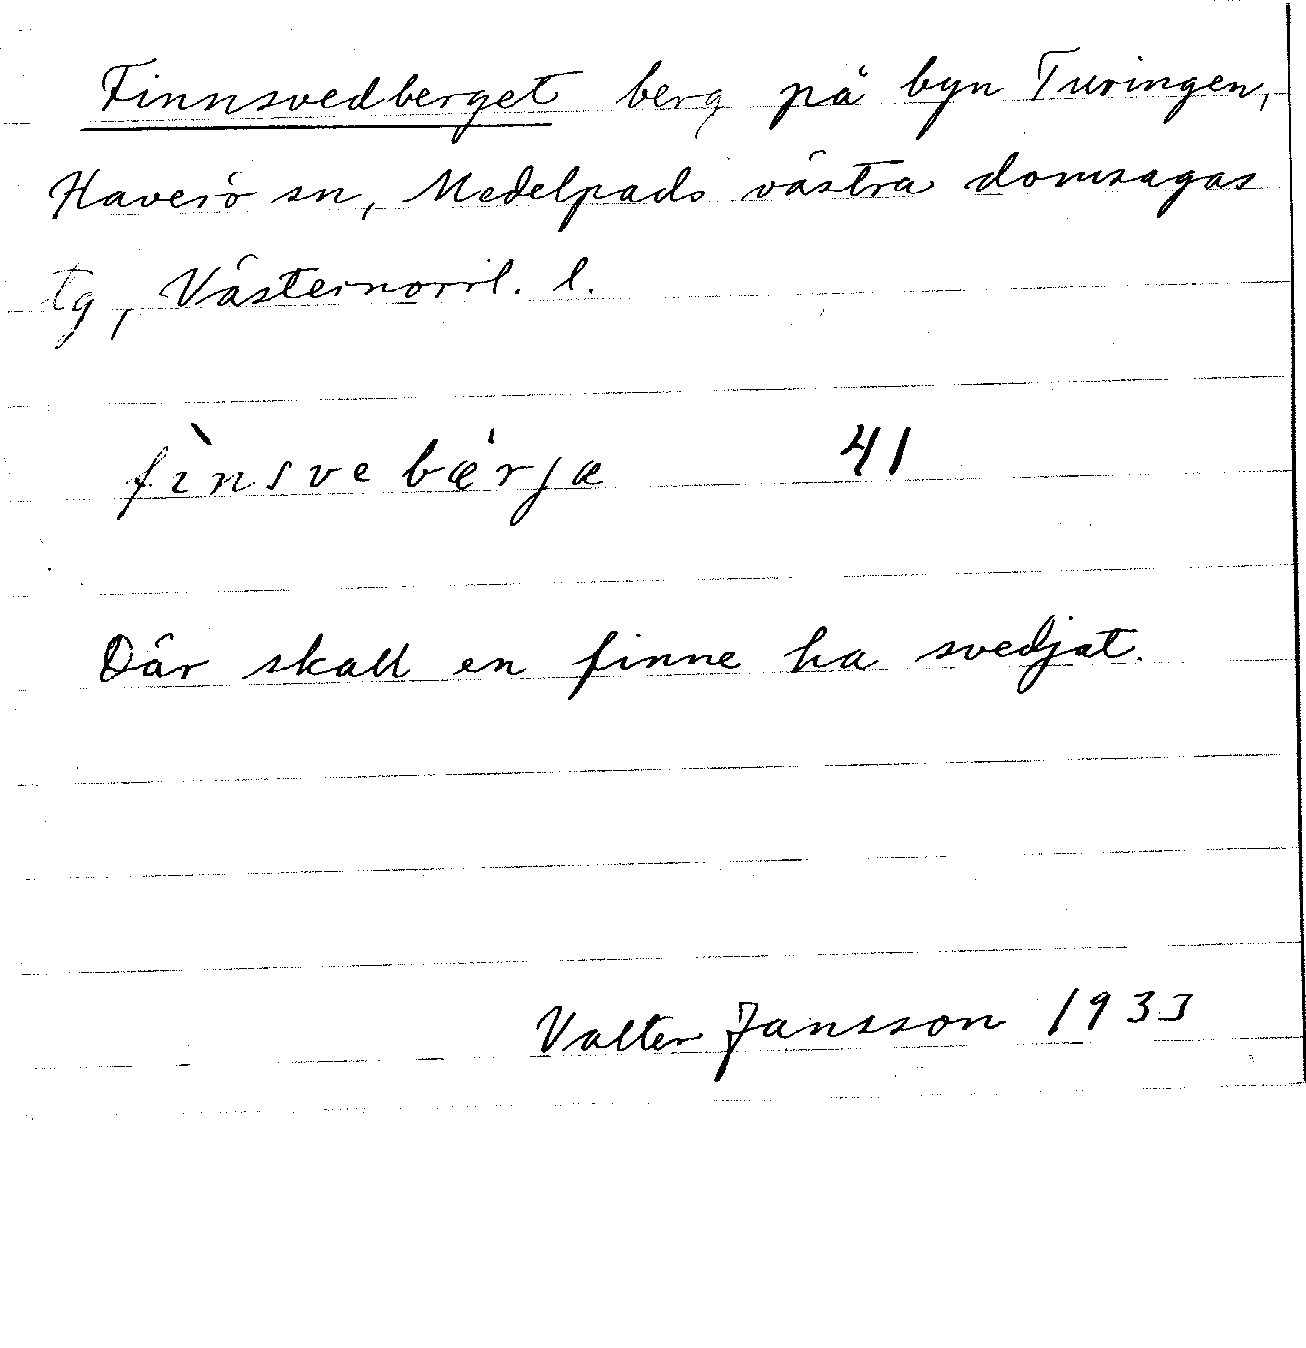 Finnsvedberget berg på byn Turingen,
Haverö sn, Medelpads västra domsagas
tg, Västernorrl. l.
fìnsvebǽrja 41
Där skall en finne ha svedjat.
Valter Jansson 1933